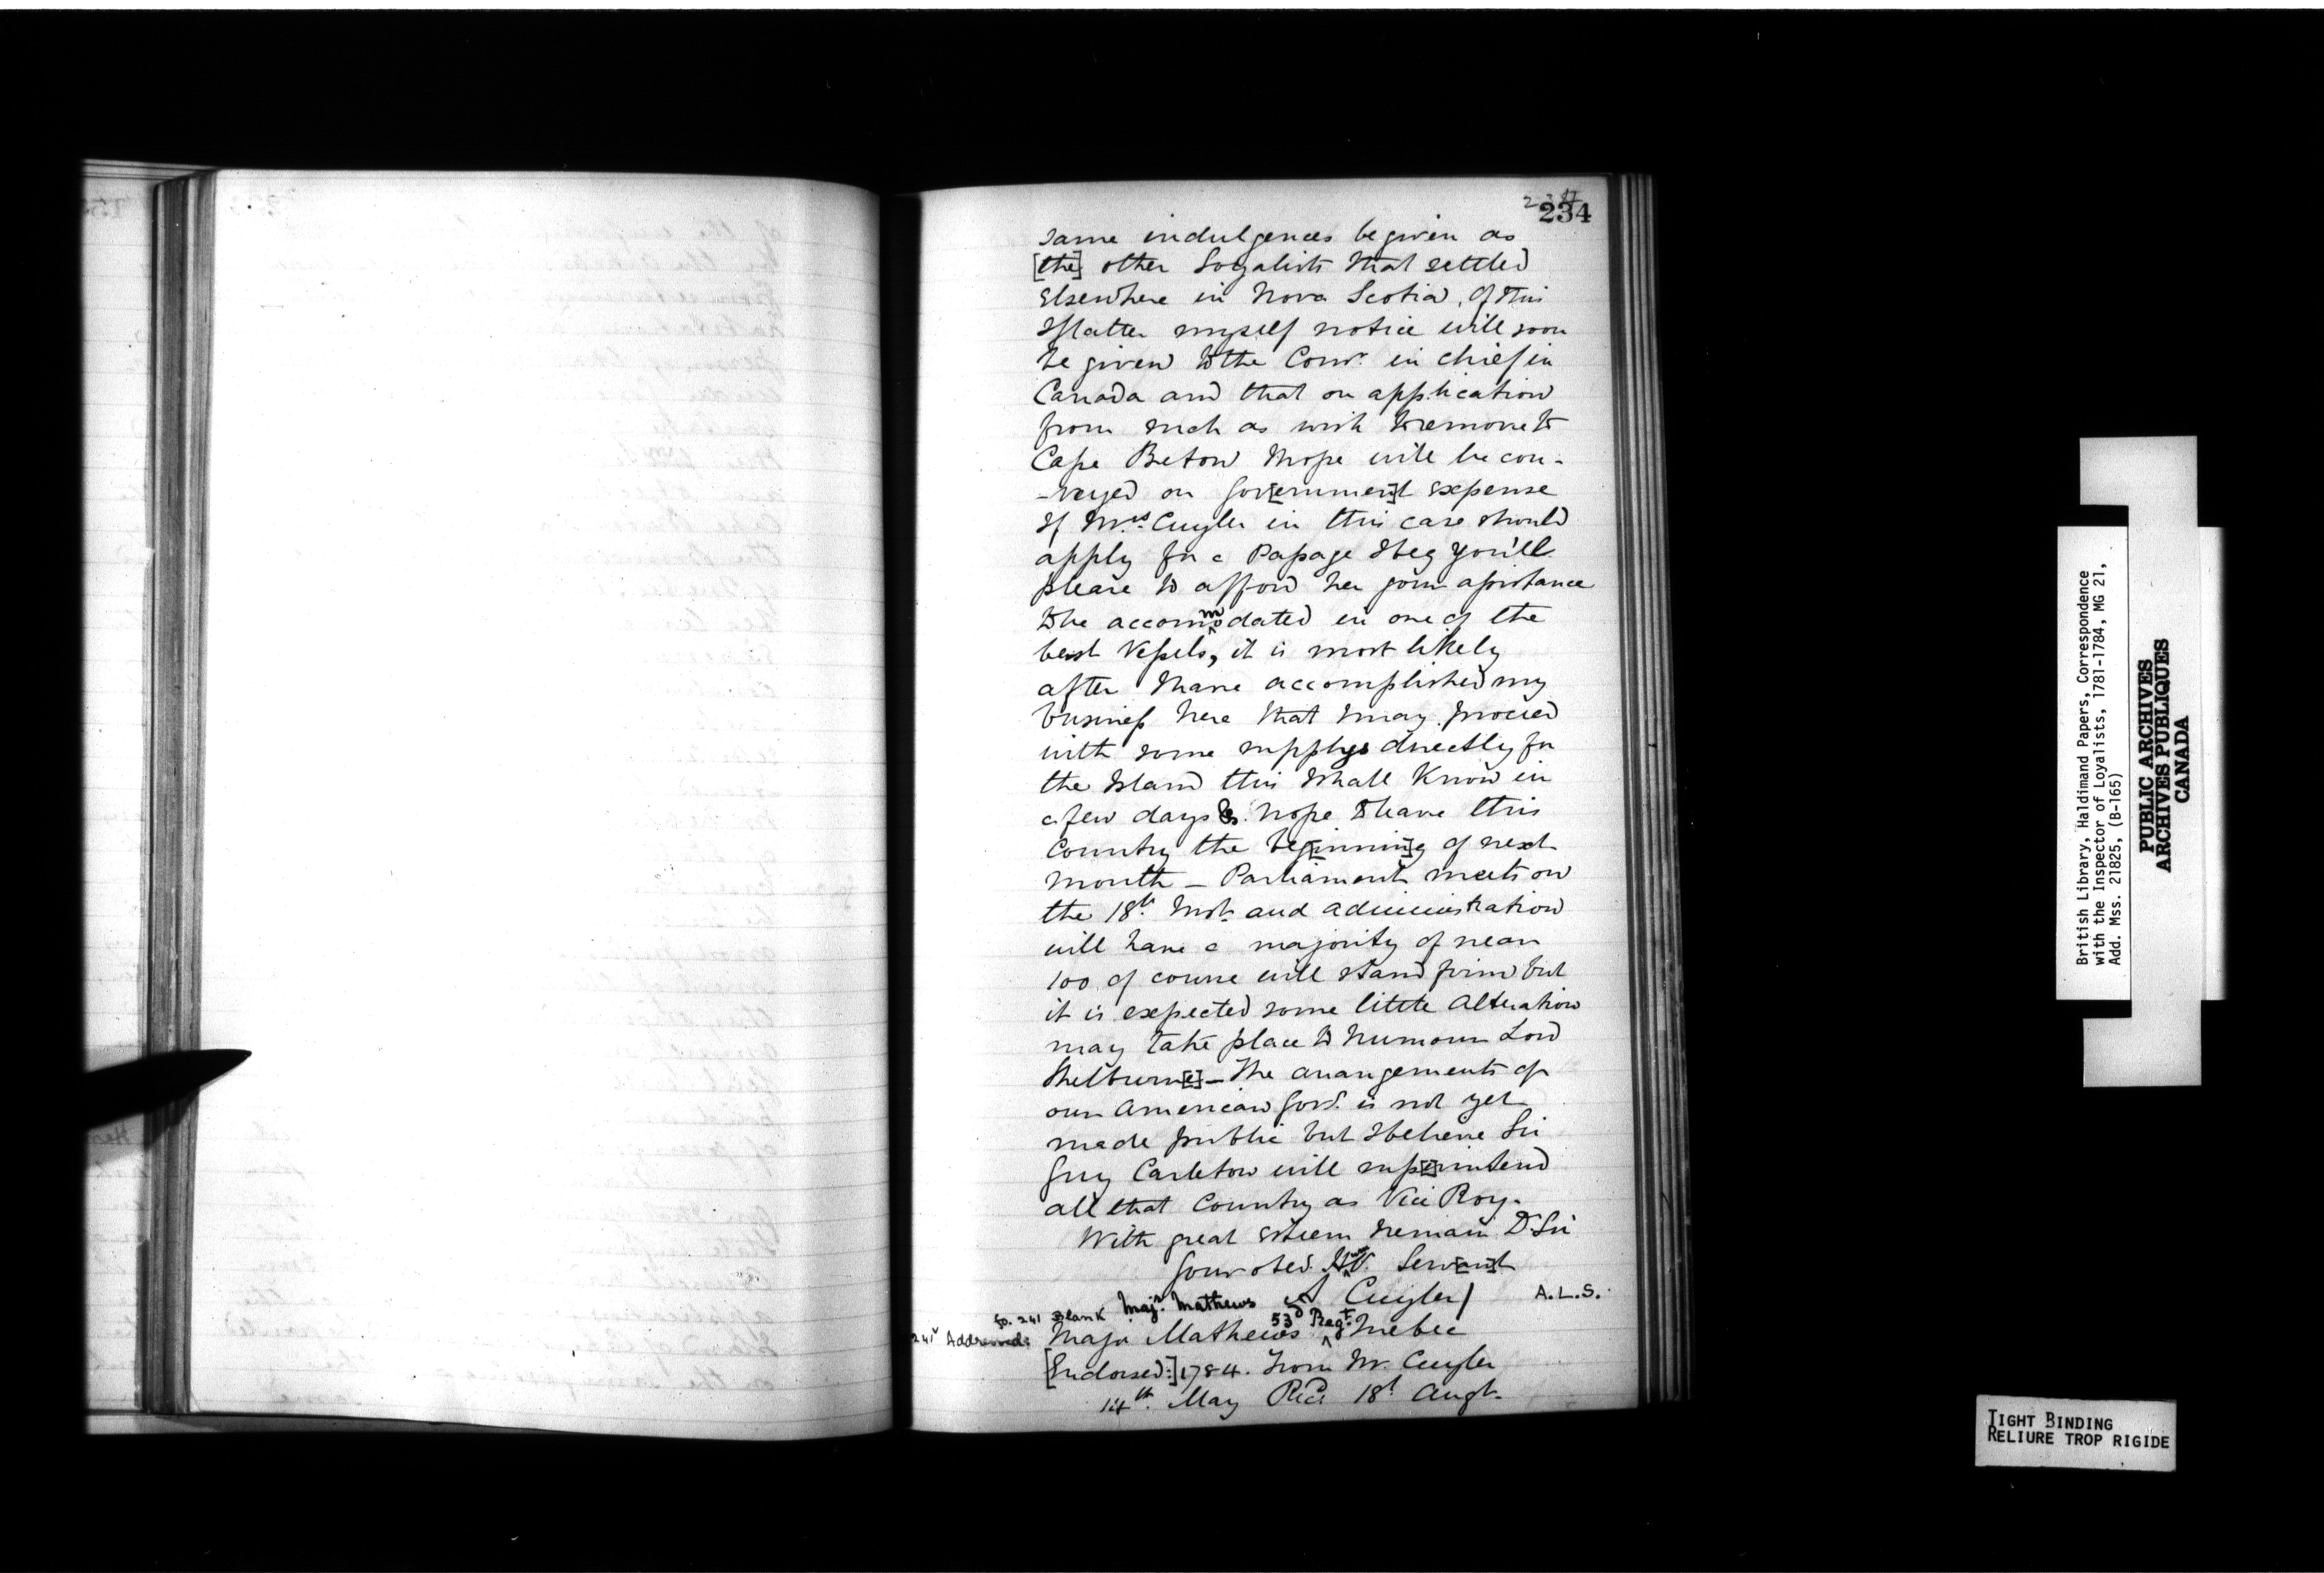 234
234
same indulgences be given as
[the] other Loyalists that settled
Elsewhere in Nova Scotia, of this
Matter myself notice will soon
be given to the Comr. in chief in
Canada and that on application
from such as wish to remove to
Cape Breton I hope will be con-
-veyed on Gov[ernmen]t expense
If Mrs. Cuyler in this case should
apply for a Passage I beg you'll
please to afford her your assistance
to be accommodated in one of the
best Vessels, it is most likely
after I have accomplished my
business here that I may proceed
with some supplys directly for
the Island this I shall Know in
a few days & hope to leave this
Country the beg[innin]g of next
month — Parliament meets on
the 18th. Inst. and administration
will have a majority of near
100 of course will stand firm but
it is expected some little Alteration
may take place to humour Lord
Shelburn[e] — The arangements of
our American Govt. is not yet
made public but I believe Sir
Guy Carleton will sup[e]rintend
all that Country as Vice Roy.
With great Esteem I remain D Sir
Your obed. Hum. Serv[an]t
A Cuyler/
A.L.S.
fo. 241 Blank Majr. Mathews
241v Addressed: Major Mathews 53d Regt. Quebec
[Endorsed:] 1784. From Mr. Cuyler
14th. May Recd 18t Augt.
British Library, Haldimand Papers, Correspondence
with the Inspector of Loyalists, 1781-1784, MG 21,
Add. Mss. 21825, (B-165)
PUBLIC ARCHIVES
ARCHIVES PUBLIQUES
CANADA
TIGHT BINDING
RELIURE TROP RIGIDE